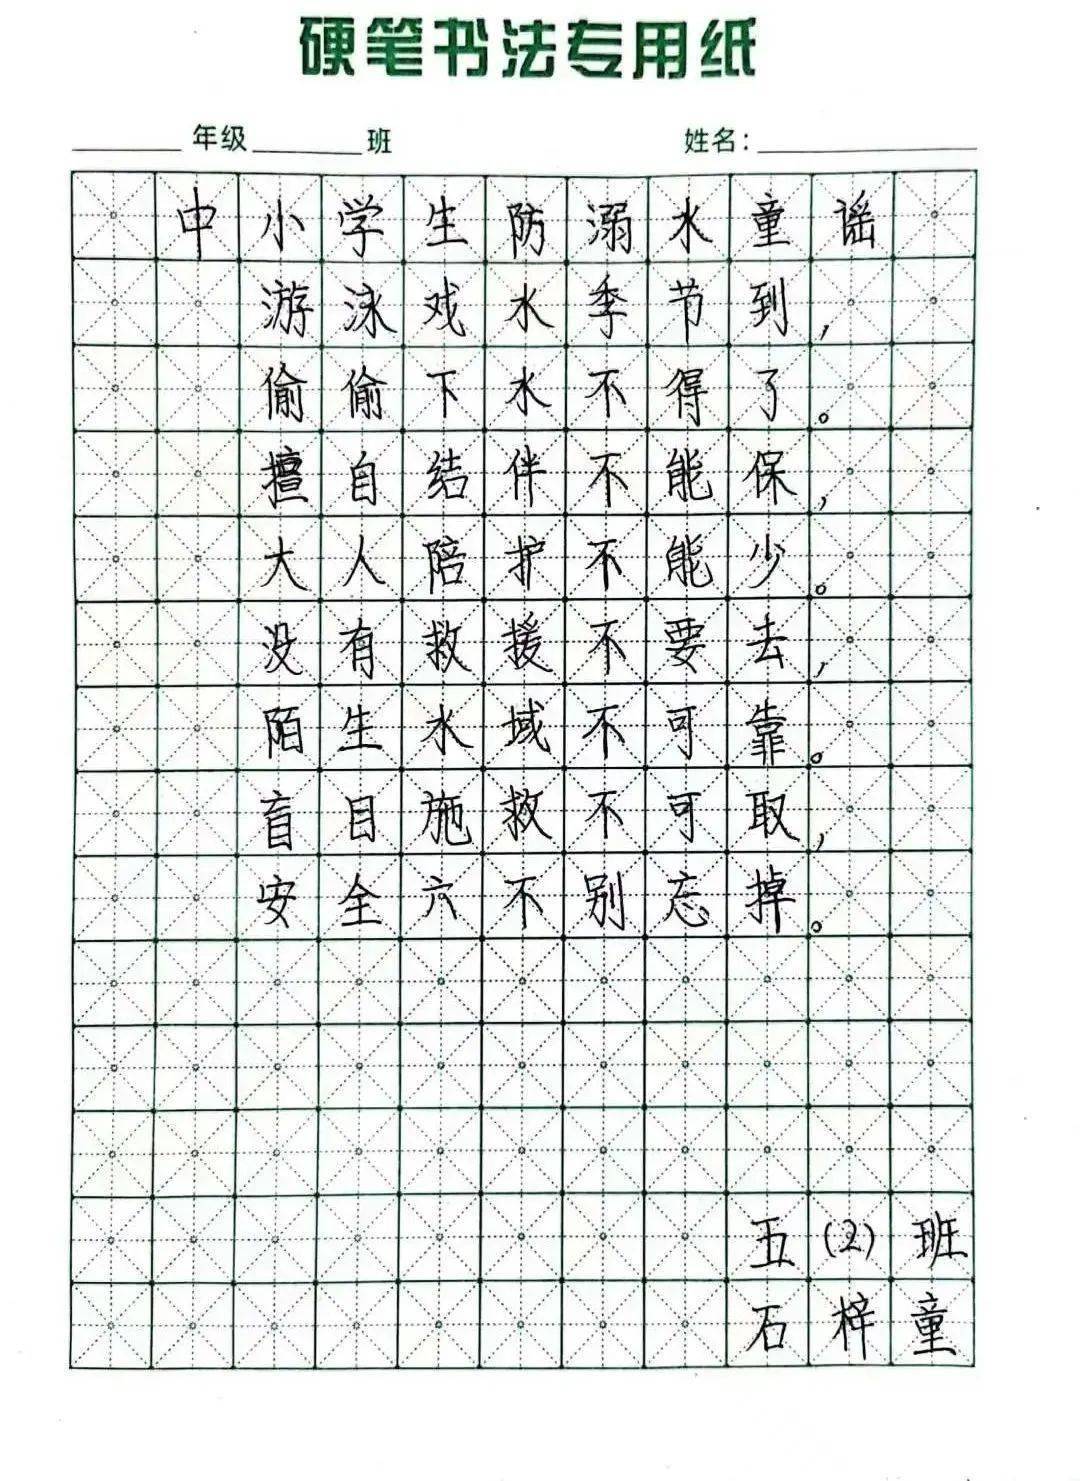 硬笔书法专用纸
年级 班 姓名:
中小学生防溺水童谣
游泳戏水季节到,
偷偷下水不得了。
擅自结伴不能保,
大人陪护不能少。
没有救援不要去,
陌生水域不可靠。
盲目施救不可取,
安全六不别忘掉。
五(2)班
石梓童